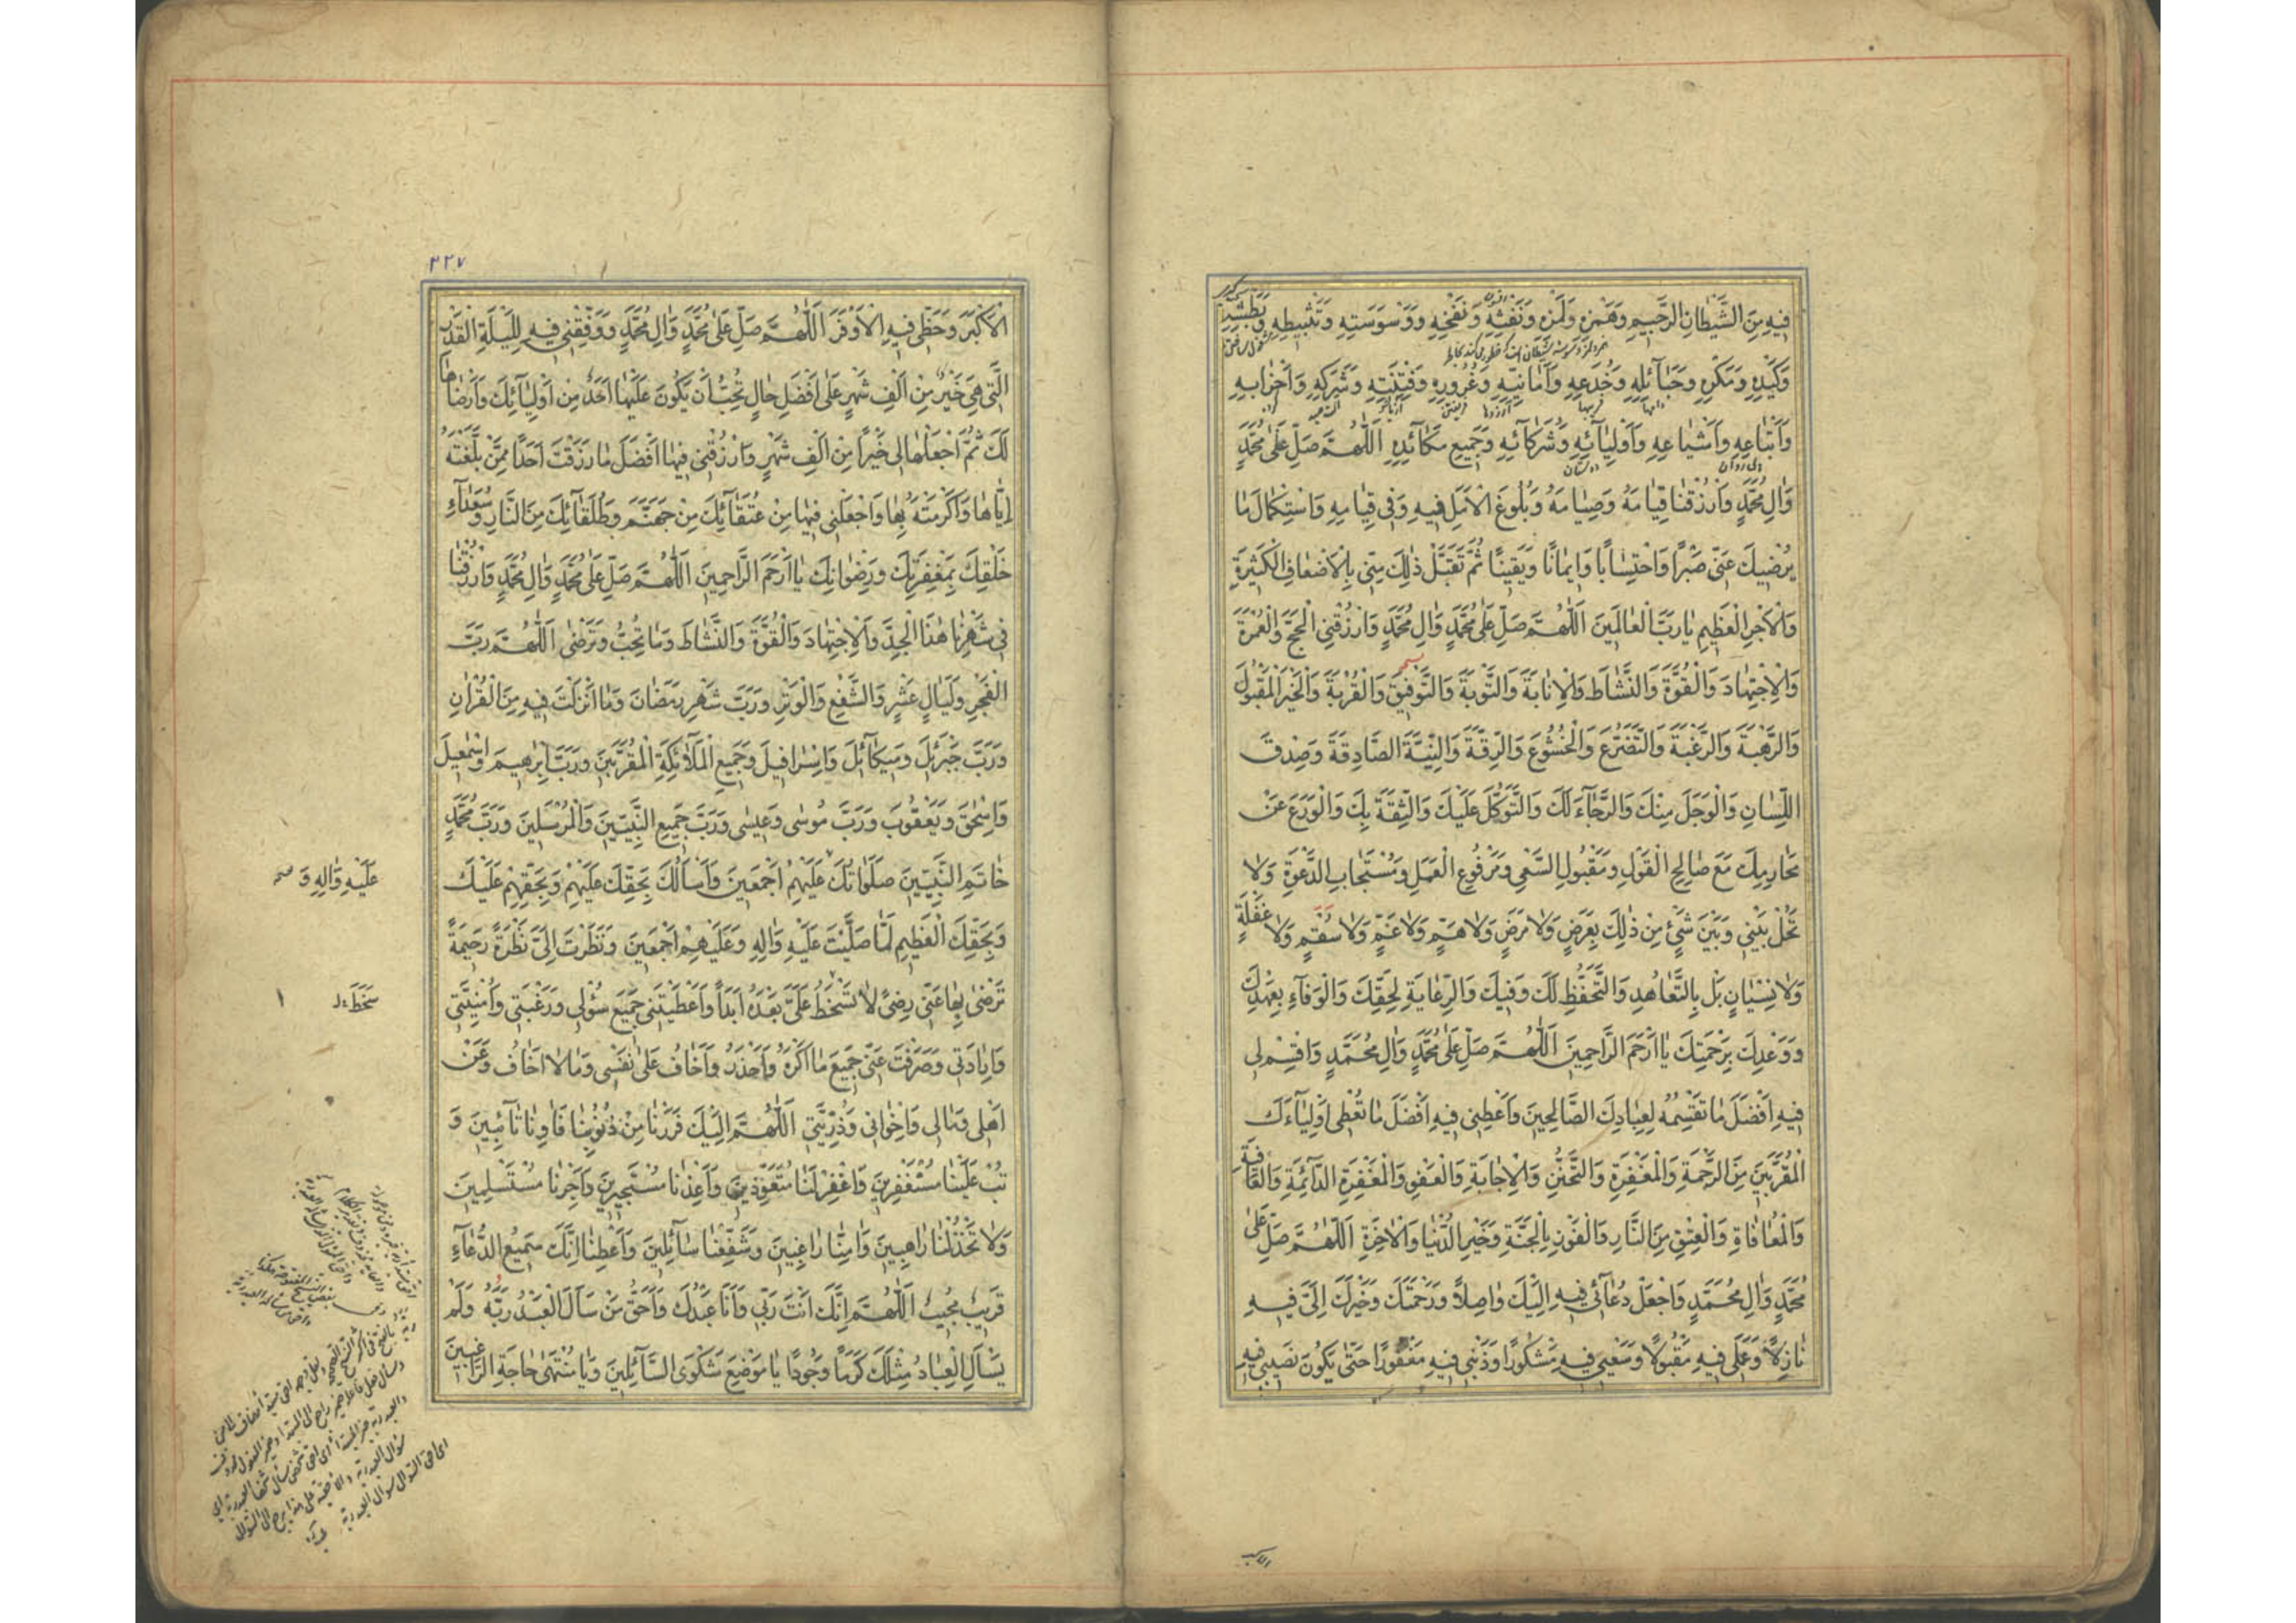 فِيهِ مِنَ الشَّيْطَانِ الرَّجِيمِ وَهَمْزِهِ وَلَمْزِهِ وَنَفْثِهِ وَنَفْخِهِ وَوَسْوَسَتِهِ وَتَثْبِيطِهِ وَبَطْشِهِ
وَكَيْدِهِ وَمَكْرِهِ وَحَبَآئِلِهِ وَخُدَعِهِ وَاَمَانِيِّهِ وَغُرُورِهِ وَفِتْنَتِهِ وَشَرَكِهِ وَاَحْزَابِهِ
وَاَتْبَاعِهِ وَاَشْيَاعِهِ وَاَوْلِيَآئِهِ وَشُرَكَآئِهِ وَجَمِيعِ مَكَآئِدِهِ اَللّٰهُمَّ صَلِّ عَلٰى مُحَمَّدٍ
وَاٰلِ مُحَمَّدٍ وَارْزُقْنَا قِيَامَهُ وَصِيَامَهُ وَبُلُوغَ الْاَمَلِ فِيهِ وَفِي قِيَامِهِ وَاسْتِكْمَالَ مَا
يُرْضِيكَ عَنِّي صَبْرًا وَاحْتِسَابًا وَاِيمَانًا وَيَقِينًا ثُمَّ تَقَبَّلْ ذٰلِكَ مِنِّي بِالْاَضْعَافِ الْكَثِيرَةِ
وَالْاَجْرِ الْعَظِيمِ يَا رَبَّ الْعَالَمِينَ اَللّٰهُمَّ صَلِّ عَلٰى مُحَمَّدٍ وَاٰلِ مُحَمَّدٍ وَارْزُقْنِي الْحَجَّ وَالْعُمْرَةَ
وَالْاِجْتِهَادَ وَالْقُوَّةَ وَالنَّشَاطَ وَالْاِنَابَةَ وَالتَّوْبَةَ وَالتَّوْفِيقَ وَالْقُرْبَةَ وَالْخَيْرَ الْمَقْبُولَ
وَالرَّهْبَةَ وَالرَّغْبَةَ وَالتَّضَرُّعَ وَالْخُشُوعَ وَالرِّقَّةَ وَالنِّيَّةَ الصَّادِقَةَ وَصِدْقَ
اللِّسَانِ وَالْوَجَلَ مِنْكَ وَالرَّجَآءَ لَكَ وَالتَّوَكُّلَ عَلَيْكَ وَالثِّقَةَ بِكَ وَالْوَرَعَ عَنْ
مَحَارِمِكَ مَعَ صَالِحِ الْقَوْلِ وَمَقْبُولِ السَّعْيِ وَمَرْفُوعِ الْعَمَلِ وَمُسْتَجَابِ الدَّعْوَةِ وَلَا
تَحُلْ بَيْنِي وَبَيْنَ شَيْءٍ مِنْ ذٰلِكَ بِعَرَضٍ وَلَا مَرَضٍ وَلَا هَمٍّ وَلَا غَمٍّ وَلَا سُقْمٍ وَلَا غَفْلَةٍ
وَلَا نِسْيَانٍ بَلْ بِالتَّعَاهُدِ وَالتَّحَفُّظِ لَكَ وَفِيكَ وَالرِّعَايَةِ لِحَقِّكَ وَالْوَفَآءِ بِعَهْدِكَ
وَوَعْدِكَ بِرَحْمَتِكَ يَا اَرْحَمَ الرَّاحِمِينَ اَللّٰهُمَّ صَلِّ عَلٰى مُحَمَّدٍ وَاٰلِ مُحَمَّدٍ وَاقْسِمْ لِي
فِيهِ اَفْضَلَ مَا تَقْسِمُهُ لِعِبَادِكَ الصَّالِحِينَ وَاَعْطِنِي فِيهِ اَفْضَلَ مَا تُعْطِي اَوْلِيَآءَكَ
الْمُقَرَّبِينَ مِنَ الرَّحْمَةِ وَالْمَغْفِرَةِ وَالتَّحَنُّنِ وَالْاِجَابَةِ وَالْعَفْوِ وَالْمَغْفِرَةِ الدَّآئِمَةِ وَالْعَافِيَةِ
وَالْمُعَافَاةِ وَالْعِتْقِ مِنَ النَّارِ وَالْفَوْزِ بِالْجَنَّةِ وَخَيْرِ الدُّنْيَا وَالْاٰخِرَةِ اَللّٰهُمَّ صَلِّ عَلٰى
مُحَمَّدٍ وَاٰلِ مُحَمَّدٍ وَاجْعَلْ دُعَآئِي فِيهِ اِلَيْكَ وَاصِلًا وَرَحْمَتَكَ وَخَيْرَكَ اِلَيَّ فِيهِ
نَازِلًا وَعَمَلِي فِيهِ مَقْبُولًا وَسَعْيِي فِيهِ مَشْكُورًا وَذَنْبِي فِيهِ مَغْفُورًا حَتّٰى يَكُونَ نَصِيبِي فِيهِ
الاكبر
٢٢٧
الْاَكْبَرَ وَحَظِّي فِيهِ الْاَوْفَرَ اَللّٰهُمَّ صَلِّ عَلٰى مُحَمَّدٍ وَاٰلِ مُحَمَّدٍ وَوَفِّقْنِي فِيهِ لِلَيْلَةِ الْقَدْرِ
الَّتِي هِيَ خَيْرٌ مِنْ اَلْفِ شَهْرٍ عَلٰى اَفْضَلِ حَالٍ تُحِبُّ اَنْ يَكُونَ عَلَيْهَا اَحَدٌ مِنْ اَوْلِيَآئِكَ وَاَرْضَاهَا
لَكَ ثُمَّ اجْعَلْهَا لِي خَيْرًا مِنْ اَلْفِ شَهْرٍ وَارْزُقْنِي فِيهَا اَفْضَلَ مَا رَزَقْتَ اَحَدًا مِمَّنْ بَلَّغْتَهُ
اِيَّاهَا وَاَكْرَمْتَهُ بِهَا وَاجْعَلْنِي فِيهَا مِنْ عُتَقَآئِكَ مِنْ جَهَنَّمَ وَطُلَقَآئِكَ مِنَ النَّارِ وَسُعَدَآءِ
خَلْقِكَ بِمَغْفِرَتِكَ وَرِضْوَانِكَ يَا اَرْحَمَ الرَّاحِمِينَ اَللّٰهُمَّ صَلِّ عَلٰى مُحَمَّدٍ وَاٰلِ مُحَمَّدٍ وَارْزُقْنَا
فِي شَهْرِنَا هٰذَا الْجِدَّ وَالْاِجْتِهَادَ وَالْقُوَّةَ وَالنَّشَاطَ وَمَا تُحِبُّ وَتَرْضٰى اَللّٰهُمَّ رَبَّ
الْفَجْرِ وَلَيَالٍ عَشْرٍ وَالشَّفْعِ وَالْوَتْرِ وَرَبَّ شَهْرِ رَمَضَانَ وَمَا اَنْزَلْتَ فِيهِ مِنَ الْقُرْاٰنِ
وَرَبَّ جَبْرَئِلَ وَمِيكَآئِلَ وَاِسْرَافِيلَ وَجَمِيعِ الْمَلَآئِكَةِ الْمُقَرَّبِينَ وَرَبَّ اِبْرٰهِيمَ وَاِسْمٰعِيلَ
وَاِسْحٰقَ وَيَعْقُوبَ وَرَبَّ مُوسٰى وَعِيسٰى وَرَبَّ جَمِيعِ النَّبِيِّينَ وَالْمُرْسَلِينَ وَرَبَّ مُحَمَّدٍ
خَاتَمِ النَّبِيِّينَ صَلَوَاتُكَ عَلَيْهِمْ اَجْمَعِينَ وَاَسْاَلُكَ بِحَقِّكَ عَلَيْهِمْ وَبِحَقِّهِمْ عَلَيْكَ
عَلَيْهِ وَاٰلِهِ وَ صح
وَبِحَقِّكَ الْعَظِيمِ لَمَّا صَلَّيْتَ عَلَيْهِ وَاٰلِهِ وَعَلَيْهِمْ اَجْمَعِينَ وَنَظَرْتَ اِلَيَّ نَظْرَةً رَحِيمَةً
تَرْضٰى بِهَا عَنِّي رِضًى لَا تَسْخَطُ عَلَيَّ بَعْدَهُ اَبَدًا وَاَعْطَيْتَنِي جَمِيعَ سُؤْلِي وَرَغْبَتِي وَاُمْنِيَّتِي
سَخَطَ
وَاِرَادَتِي وَصَرَفْتَ عَنِّي جَمِيعَ مَا اَكْرَهُ وَاَحْذَرُ وَاَخَافُ عَلٰى نَفْسِي وَمَا لَا اَخَافُ وَعَنْ
اَهْلِي وَمَالِي وَاِخْوَانِي وَذُرِّيَّتِي اَللّٰهُمَّ اِلَيْكَ فَرَرْنَا مِنْ ذُنُوبِنَا فَاٰوِنَا تَآئِبِينَ وَ
تُبْ عَلَيْنَا مُسْتَغْفِرِينَ وَاغْفِرْ لَنَا مُتَعَوِّذِينَ وَاَعِذْنَا مُسْتَجِيرِينَ وَاَجِرْنَا مُسْتَسْلِمِينَ
وَلَا تَخْذُلْنَا رَاهِبِينَ وَاٰمِنَّا رَاغِبِينَ وَشَفِّعْنَا سَآئِلِينَ وَاَعْطِنَا اِنَّكَ سَمِيعُ الدُّعَآءِ
قَرِيبٌ مُجِيبٌ اَللّٰهُمَّ اِنَّكَ اَنْتَ رَبِّي وَاَنَا عَبْدُكَ وَاَحَقُّ مَنْ سَاَلَ الْعَبْدُ رَبُّهُ وَلَمْ
يَسْاَلِ الْعِبَادُ مِثْلَكَ كَرَمًا وَجُودًا يَا مَوْضِعَ شَكْوَى السَّآئِلِينَ وَيَا مُنْتَهٰى حَاجَةِ الرَّاغِبِينَ